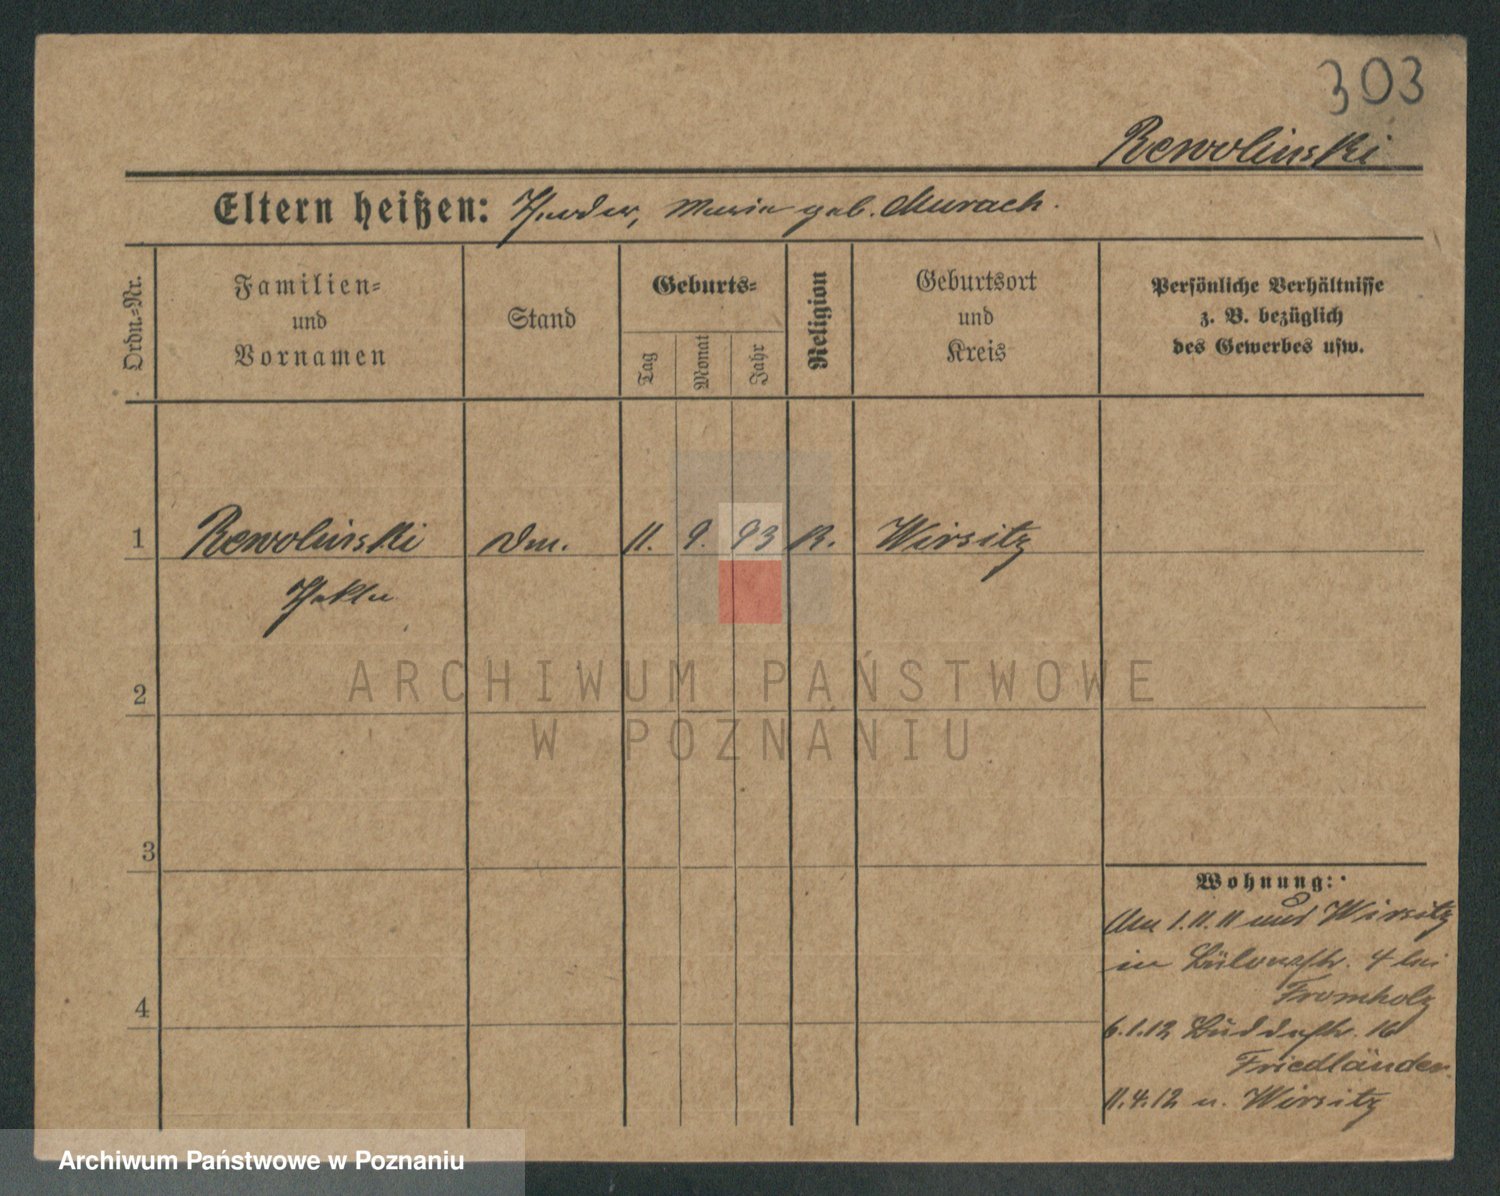 303
Rewolinski
Eltern heißen: Theodor, Maria geb. Murach.
Ordn.-Nr.
Familien-
und
Vornamen
Stand
Geburts-
Tag
Monat
Jahr
Religion
Geburtsort
und
Kreis
Persönliche Verhältnisse
z. B. bezüglich
des Gewerbes usw.
1 Rewolinski 11. 9. 93 K. Wirsitz
Thekla
2
3
4
Wohnung:
Am 1.11.11 aus Wirsitz
in Bülowstr. 4 bei
Fromholz
6.1.12 Buddestr. 16
Friedländer.
11.4.12 n. Wirsitz
ARCHIWUM PAŃSTWOWE
W POZNANIU
Archiwum Państwowe w Poznaniu